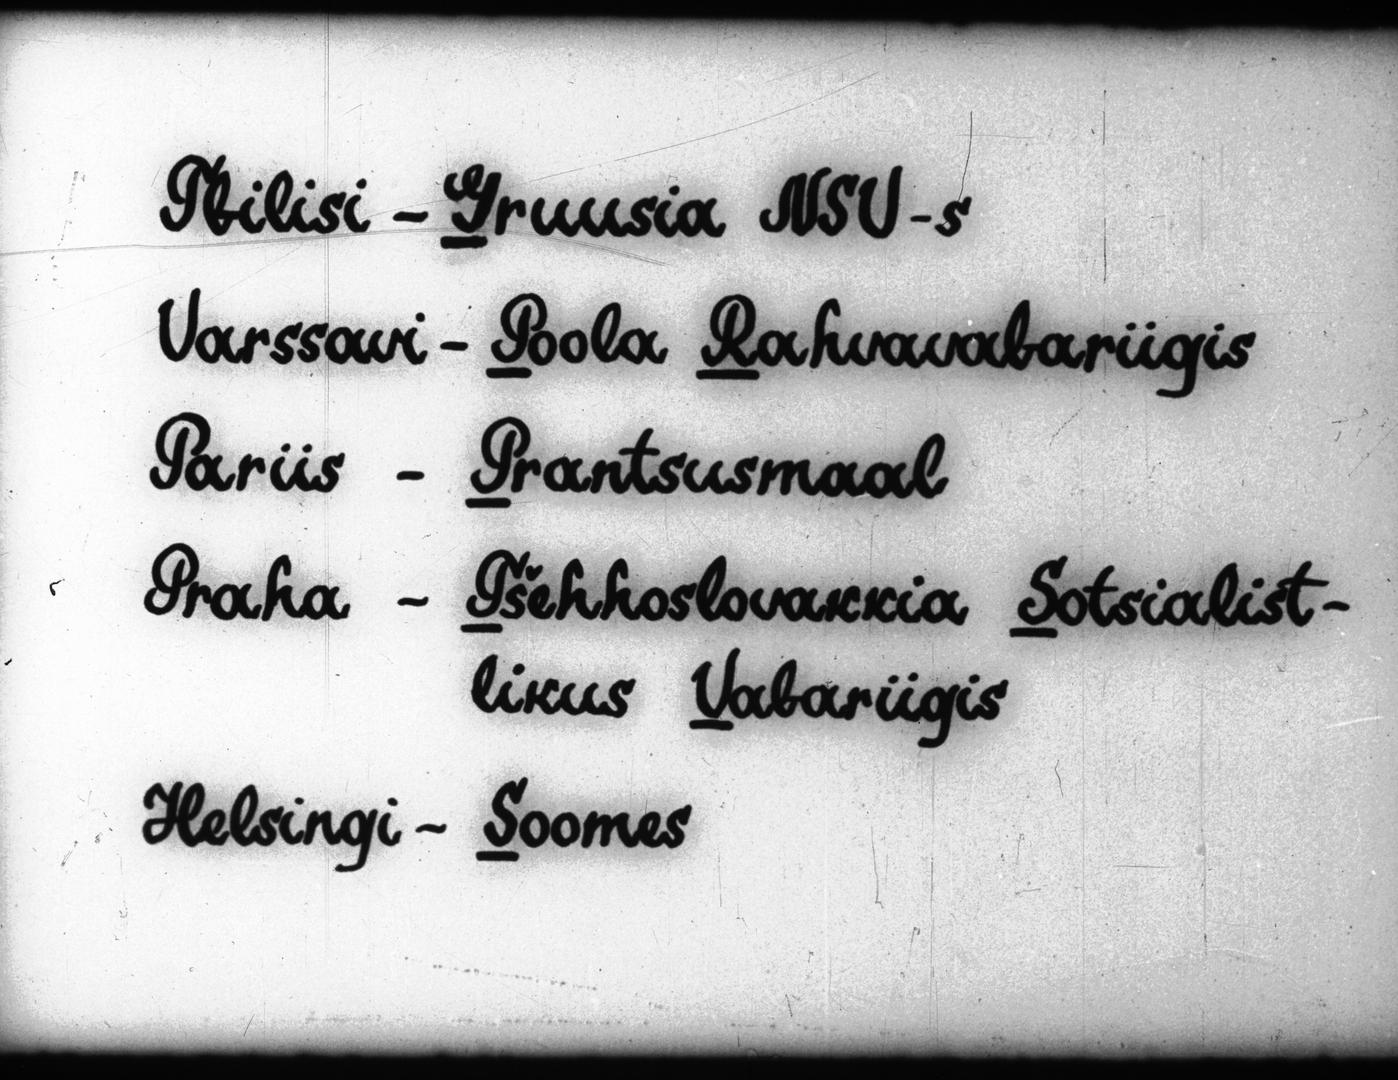 Tbilisi - Gruusia NSV-s
Varssavi - Poola Rahvavabariigis
Pariis - Prantsusmaal
Praha - Tšehhoslovakkia Sotsialist-
likus Vabariigis
Helsingi - Soomes